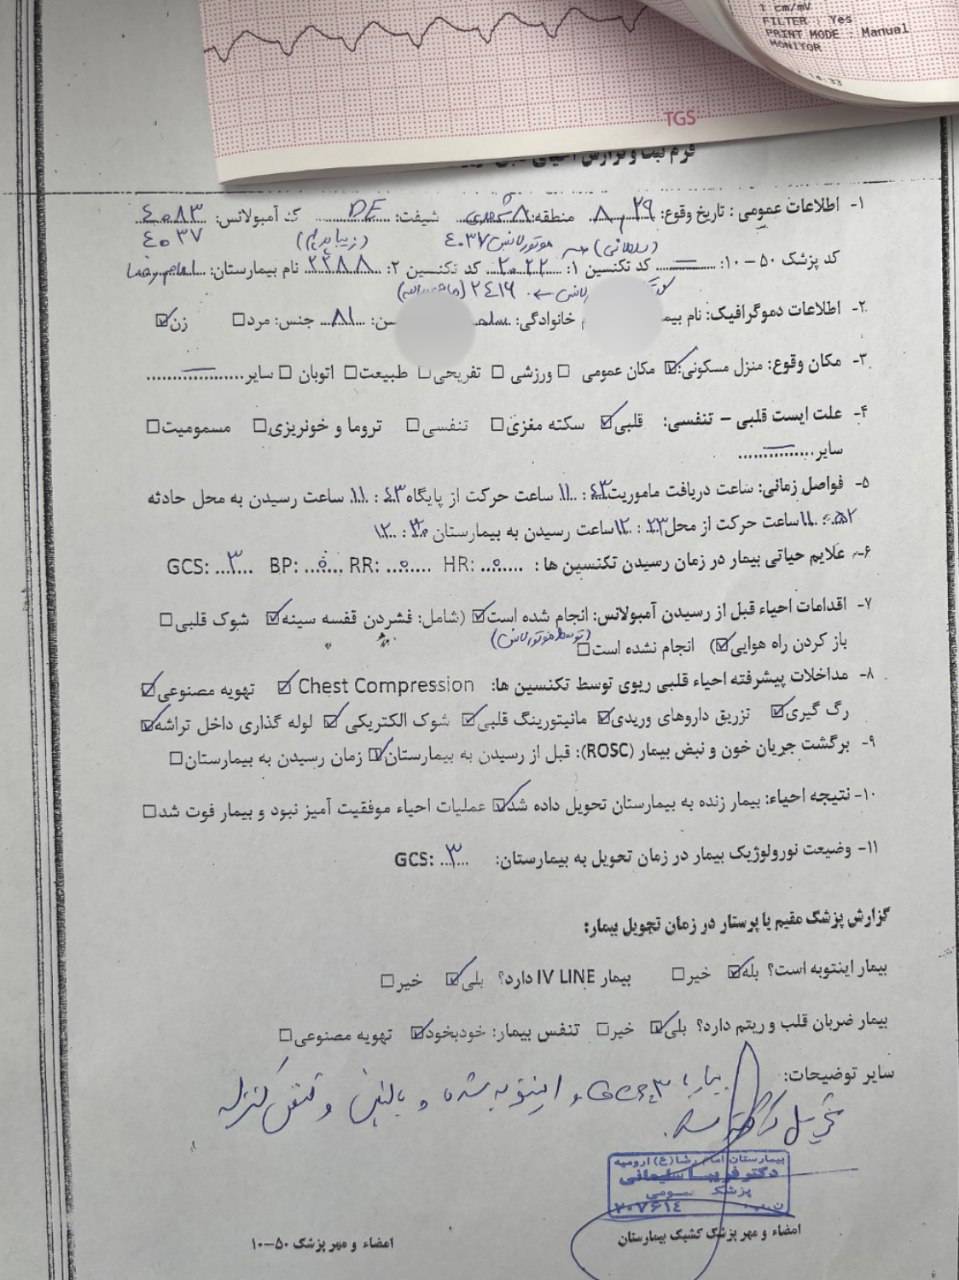 1 cm/mV
FILTER : Yes
PRINT MODE : Manual
MONITOR
TGS
۱- اطلاعات عمومی: تاریخ وقوع: ۸/۲۹ منطقه: شهری ۸ شیفت: DE کد آمبولانس: ۴۰۸۳
۴۰۳۷ موتورلانس ۴۰۳۷
کد پزشک ۵۰-۱۰: — کد تکنسین ۱: ۲۰۲۲ کد تکنسین ۲: ۲۲۸۸ نام بیمارستان: امام رضا
۲۴۱۹
۲- اطلاعات دموگرافیک: نام بیما خانوادگی: سن: ۸۱ جنس: مرد☐ زن☑
۳- مکان وقوع: منزل مسکونی☑ مکان عمومی ☐ ورزشی ☐ تفریحی☐ طبیعت☐ اتوبان ☐ سایر
۴- علت ایست قلبی - تنفسی: قلبی☑ سکته مغزی☐ تنفسی ☐ تروما و خونریزی☐ مسمومیت☐
سایر
۵- فواصل زمانی: ساعت دریافت ماموریت ۴۳ : ۱۱ ساعت حرکت از پایگاه ۴۳ : ۱۱ ساعت رسیدن به محل حادثه
۵۲ : ۱۱ ساعت حرکت از محل ۲۳ : ۱۲ ساعت رسیدن به بیمارستان ۳۰ : ۱۲
۶- علایم حیاتی بیمار در زمان رسیدن تکنسین ها: HR: ۰ RR: ۰ BP: ۰ GCS: ۳
۷- اقدامات احیاء قبل از رسیدن آمبولانس: انجام شده است☑ (شامل: فشردن قفسه سینه☑ شوک قلبی☐
باز کردن راه هوایی☑) انجام نشده است☐ (توسط موتورلانس)
۸- مداخلات پیشرفته احیاء قلبی ریوی توسط تکنسین ها: Chest Compression ☑ تهویه مصنوعی☑
رگ گیری☑ تزریق داروهای وریدی☑ مانیتورینگ قلبی☑ شوک الکتریکی☑ لوله گذاری داخل تراشه☑
۹- برگشت جریان خون و نبض بیمار (ROSC): قبل از رسیدن به بیمارستان☑ زمان رسیدن به بیمارستان☐
۱۰- نتیجه احیاء: بیمار زنده به بیمارستان تحویل داده شد☑ عملیات احیاء موفقیت آمیز نبود و بیمار فوت شد☐
۱۱- وضیعت نورولوژیک بیمار در زمان تحویل به بیمارستان: GCS: ۳
گزارش پزشک مقیم یا پرستار در زمان تحویل بیمار:
بیمار اینتوبه است؟ بله☑ خیر☐ بیمار IV LINE دارد؟ بلی☑ خیر☐
بیمار ضربان قلب و ریتم دارد؟ بلی☑ خیر☐ تنفس بیمار: خودبخود☑ تهویه مصنوعی☐
سایر توضیحات:
بیمار با GCS ۳ و اینتوبه شده و با نبض و تنفس کنترله
تحویل گرفته شد.
بیمارستان امام رضا (ع) ارومیه
دکتر فریبا سلیمانی
پزشک عمومی
۲۰۷۶۱۴
امضاء و مهر پزشک کشیک بیمارستان
امضاء و مهر پزشک ۵۰-۱۰